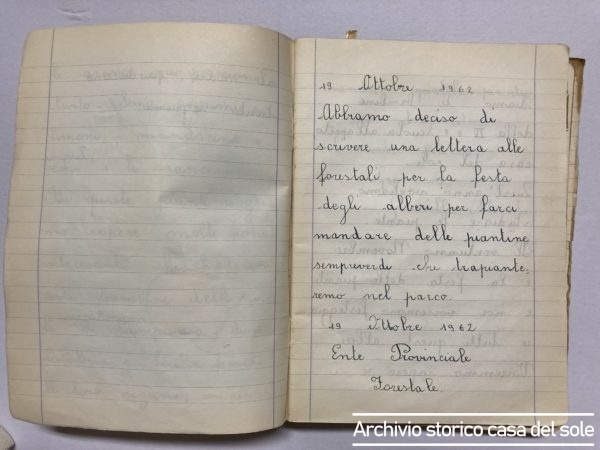 19 Ottobre 1962
Abbiamo deciso di
scrivere una lettera alle
forestali per la festa
degli alberi per farci
mandare delle piantine
sempreverdi che trapiante=
remo nel parco.
19 Ottobre 1962
Ente Provinciale
Forestale
Archivio storico casa del sole